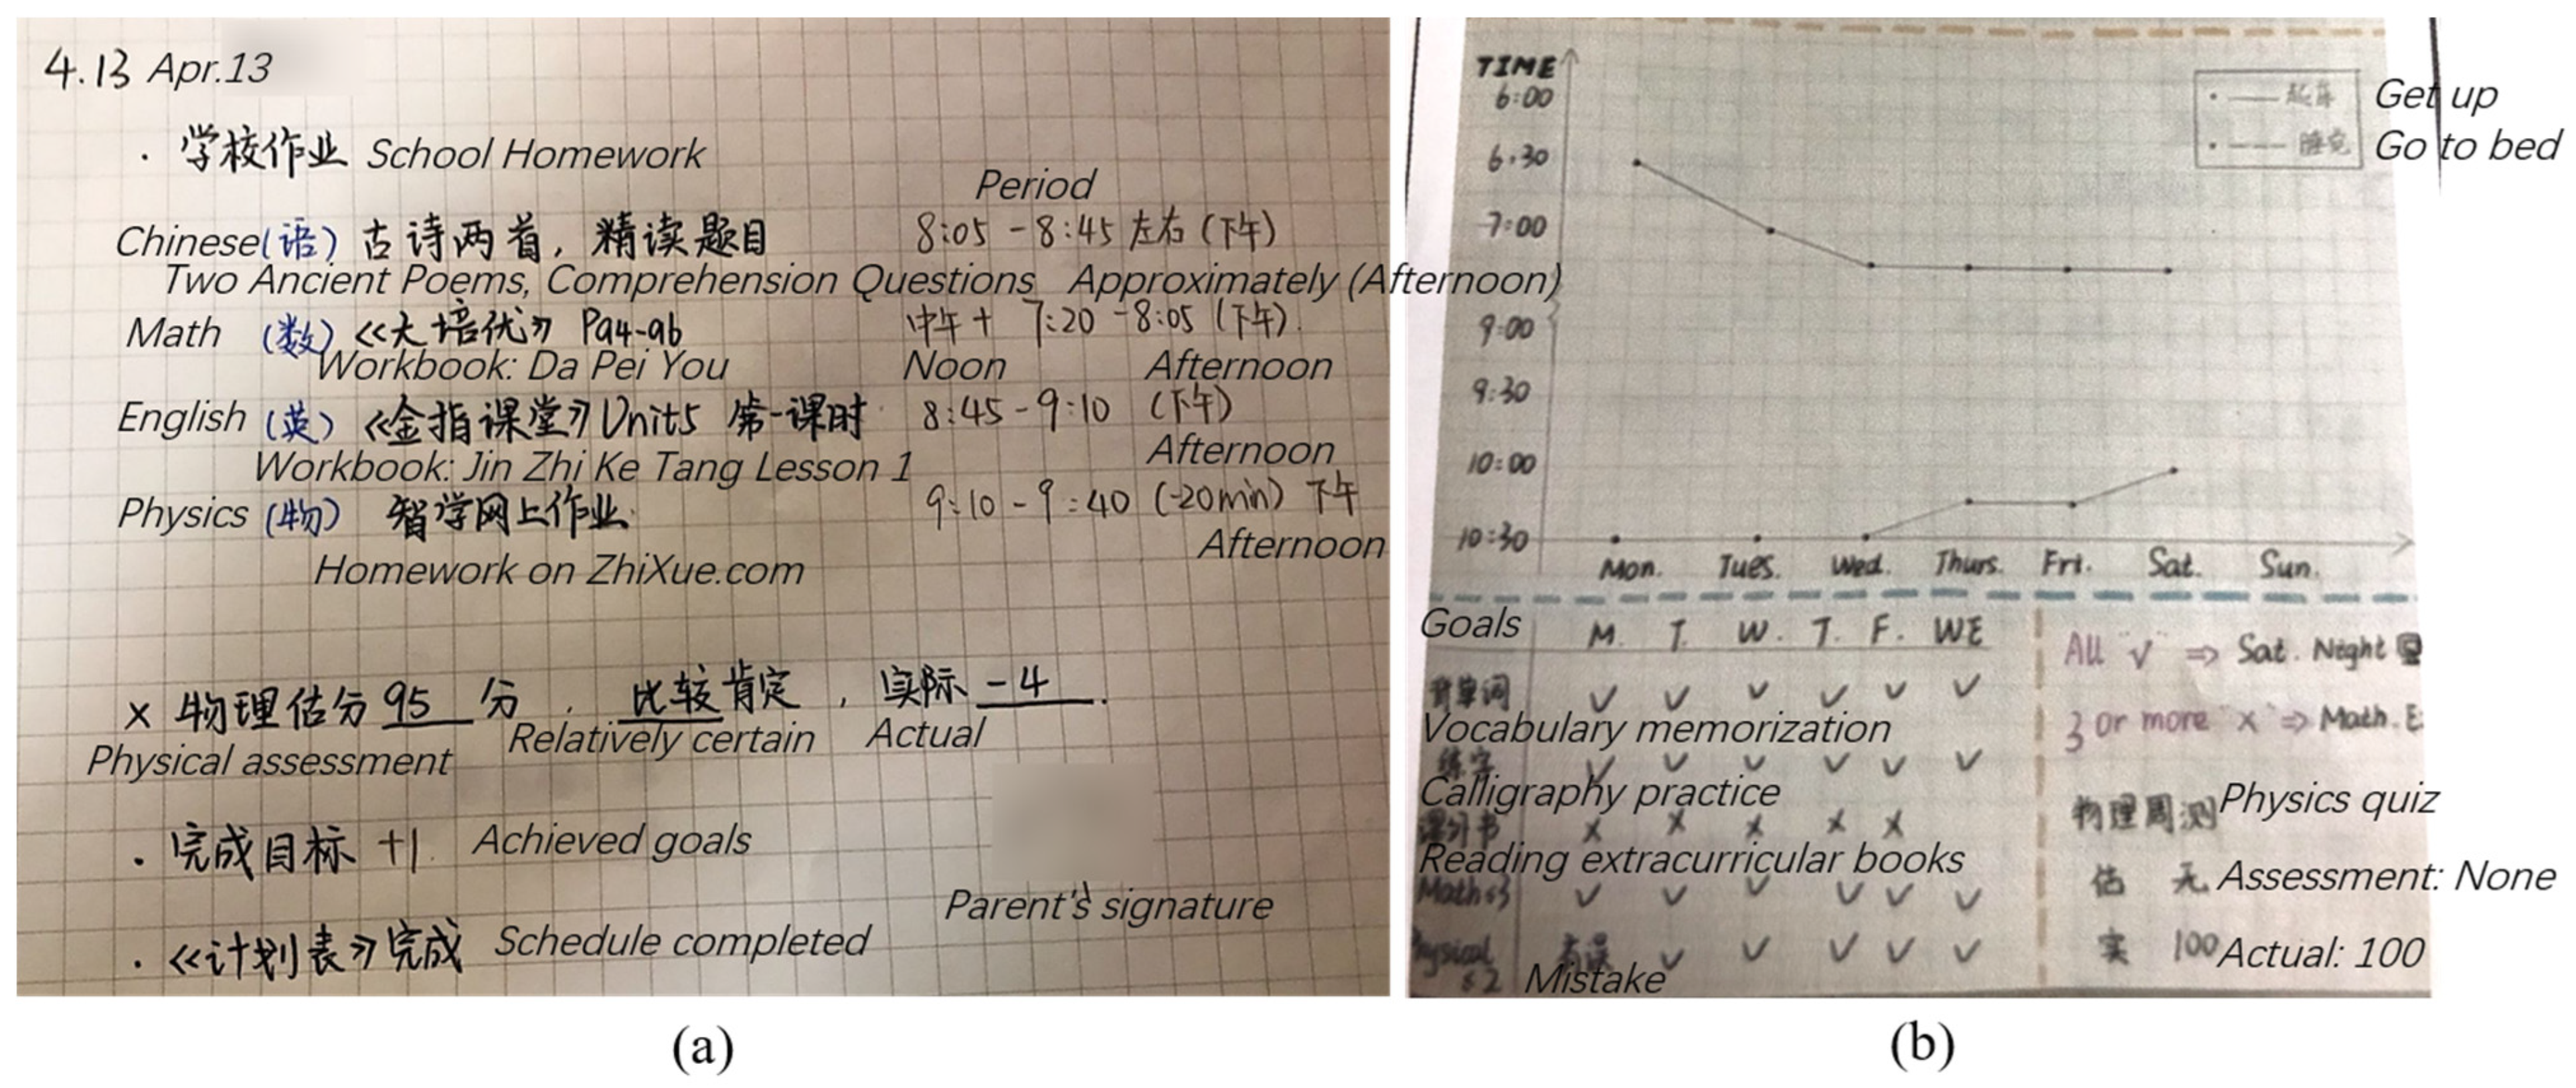 4.13 Apr.13
· 学校作业 School Homework
Period
Chinese(语) 古诗两首，精读题目 8:05-8:45 左右 (下午)
Two Ancient Poems, Comprehension Questions Approximately (Afternoon)
Math (数) 《大培优》 P94-96 中午+ 7:20-8:05 (下午).
Workbook: Da Pei You Noon Afternoon
English (英) 《金指课堂》Unit5 第一课时 8:45-9:10 (下午)
Afternoon
Workbook: Jin Zhi Ke Tang Lesson 1
Physics (物) 智学网上作业. 9:10-9:40 (-20min) 下午
Afternoon
Homework on ZhiXue.com
× 物理估分 95 分 ， 比较肯定 ，实际 -4 .
Physical assessment Relatively certain Actual
· 完成目标 +1. Achieved goals
Parent's signature
· 《计划表》完成 Schedule completed
(a)
TIME
6:00
6:30
7:00
9:00
9:30
10:00
10:30
起床 Get up
睡觉 Go to bed
Mon. Tues. Wed. Thurs. Fri. Sat. Sun.
Goals M. T. W. T. F. WE
背单词 ✓ ✓ ✓ ✓ ✓ ✓
Vocabulary memorization
练字 ✓ ✓ ✓ ✓ ✓ ✓
Calligraphy practice
课外书 × × × × ×
Reading extracurricular books
Math ✓ ✓ ✓ ✓ ✓ ✓
Physical 有误 ✓ ✓ ✓ ✓ ✓
Mistake
All "✓" ⇒ Sat. Night
3 or more "×" ⇒ Math. E
物理周测 Physics quiz
估 无 Assessment: None
实 100 Actual: 100
(b)